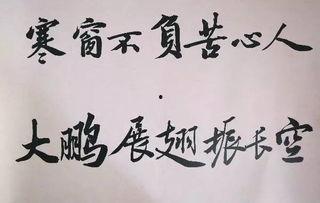 寒窗不負苦心人
大鹏展翅振长空